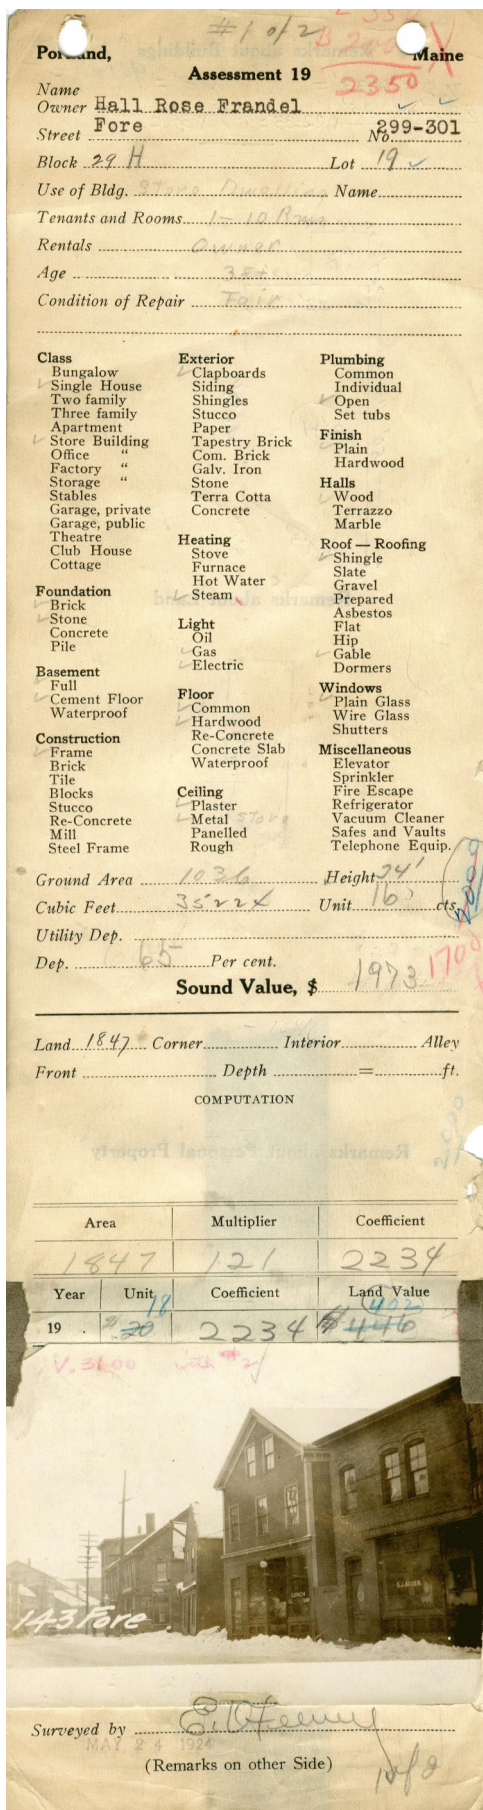 #1 of 2
2350
Portland, Maine
Assessment 19
Name
Owner Hall Rose Frandel
Street Fore No. 299-301
Block 29 H Lot 19
Use of Bldg. Store Dwelling Name
Tenants and Rooms 1 - 10 Rms
Rentals Owner
Age 35+
Condition of Repair Fair
Class
Bungalow
Single House
Two family
Three family
Apartment
Store Building
Office "
Factory "
Storage "
Stables
Garage, private
Garage, public
Theatre
Club House
Cottage
Foundation
Brick
Stone
Concrete
Pile
Basement
Full
Cement Floor
Waterproof
Construction
Frame
Brick
Tile
Blocks
Stucco
Re-Concrete
Mill
Steel Frame
Exterior
Clapboards
Siding
Shingles
Stucco
Paper
Tapestry Brick
Com. Brick
Galv. Iron
Stone
Terra Cotta
Concrete
Heating
Stove
Furnace
Hot Water
Steam
Light
Oil
Gas
Electric
Floor
Common
Hardwood
Re-Concrete
Concrete Slab
Waterproof
Ceiling
Plaster
Metal Store
Panelled
Rough
Plumbing
Common
Individual
Open
Set tubs
Finish
Plain
Hardwood
Halls
Wood
Terrazzo
Marble
Roof — Roofing
Shingle
Slate
Gravel
Prepared
Asbestos
Flat
Hip
Gable
Dormers
Windows
Plain Glass
Wire Glass
Shutters
Miscellaneous
Elevator
Sprinkler
Fire Escape
Refrigerator
Vacuum Cleaner
Safes and Vaults
Telephone Equip.
Ground Area 1036 Height 34'
Cubic Feet 35224 Unit 16 cts.
2000
Utility Dep.
Dep. 65 Per cent.
1700
Sound Value, $ 1973
Land 1847 Corner Interior Alley
Front Depth = ft.
COMPUTATION
Remarks about Personal Property
Area Multiplier Coefficient
1847 121 2234
Year Unit Coefficient Land Value
18 402
19 $ 20 2234 $446
V. 3100 with #2
LUNCH
143 Fore
Surveyed by
MAY 24 1924
(Remarks on other Side)
1 of 2